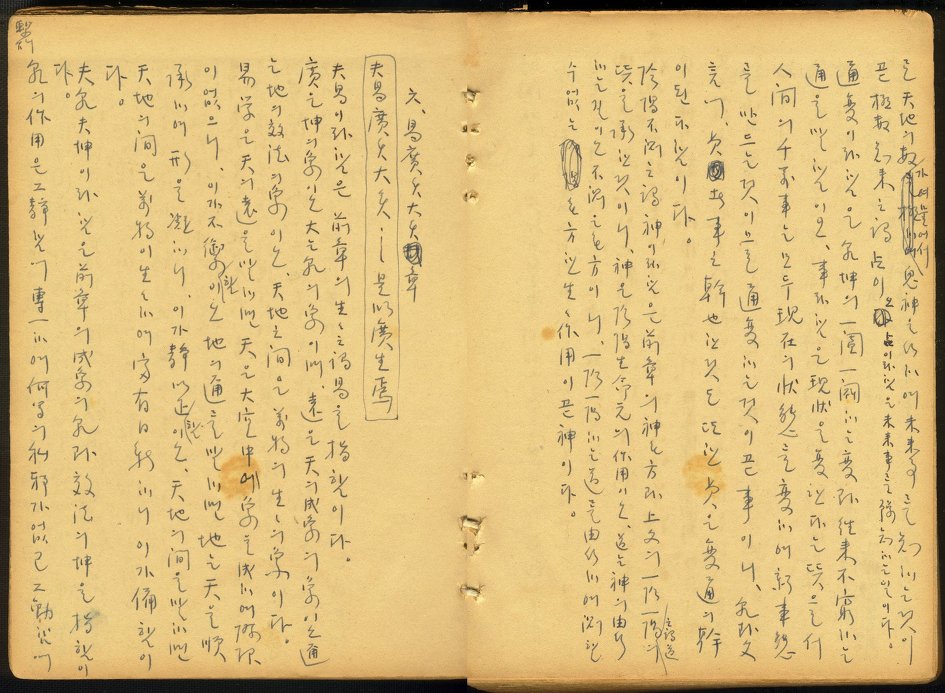 를 天地의 數가 여물어서 思神을 行하여 未來事를 知하는 것이
곧 極數知來之謂占이오 占이라 함은 未來事를 豫知하는 일이다.
通變이라 함은 乾坤의 一闔一闢하는 變과 往來不窮하는
通을 말함이오, 事라 함은 現狀을 變한다는 뜻으로서
人間의 千萬事는 모두 現在의 狀態를 變하여 新事態
를 만드는 것이므로 通變하는 것이 곧 事이니, 乾卦文
言에, 貞 事之幹也라 것도 또한 貞은 變通의 幹
이 된다 함이다.
陰陽不測之謂神이라 함은 前章의 神无方과 上文의 一陰一陽의 之謂道
뜻을 承한 것이니, 神은 陰陽生命元의 作用이오, 道는 神의 由行
하는 길이오 不測은 无方이니, 一陰一陽하는 道를 由行하여 測할
수 없는 无方한 生生作用이 곧 神이다.
六、易廣矣大矣章
夫易廣矣大矣 — 是以廣生焉
夫易이라 함은 前章의 生生之謂易을 指함이다.
廣은 坤의 象이오 大는 乾의 象이며, 遠은 天의 成象의 象이오 邇
는 地의 效法의 象이오, 天地之間은 萬物의 生生의 象이다.
易學은 天의 遠을 말하면 天은 大空中에 象을 成하여 際限
이 없으니, 이가 不禦함이오 地의 邇를 말하면 地는 天을 順
承하여 形을 凝하니, 이가 靜以正함이오, 天地의 間을 말하면
天地의 間은 萬物이 生生하여 富有日新하니 이가 備함이
다.
夫乾 夫坤이라 함은 前章의 成象의 乾과 效法의 坤을 指함이
다.
乾의 作用은 그 靜함에 專一하여 何等의 私邪가 없고 그 動함에